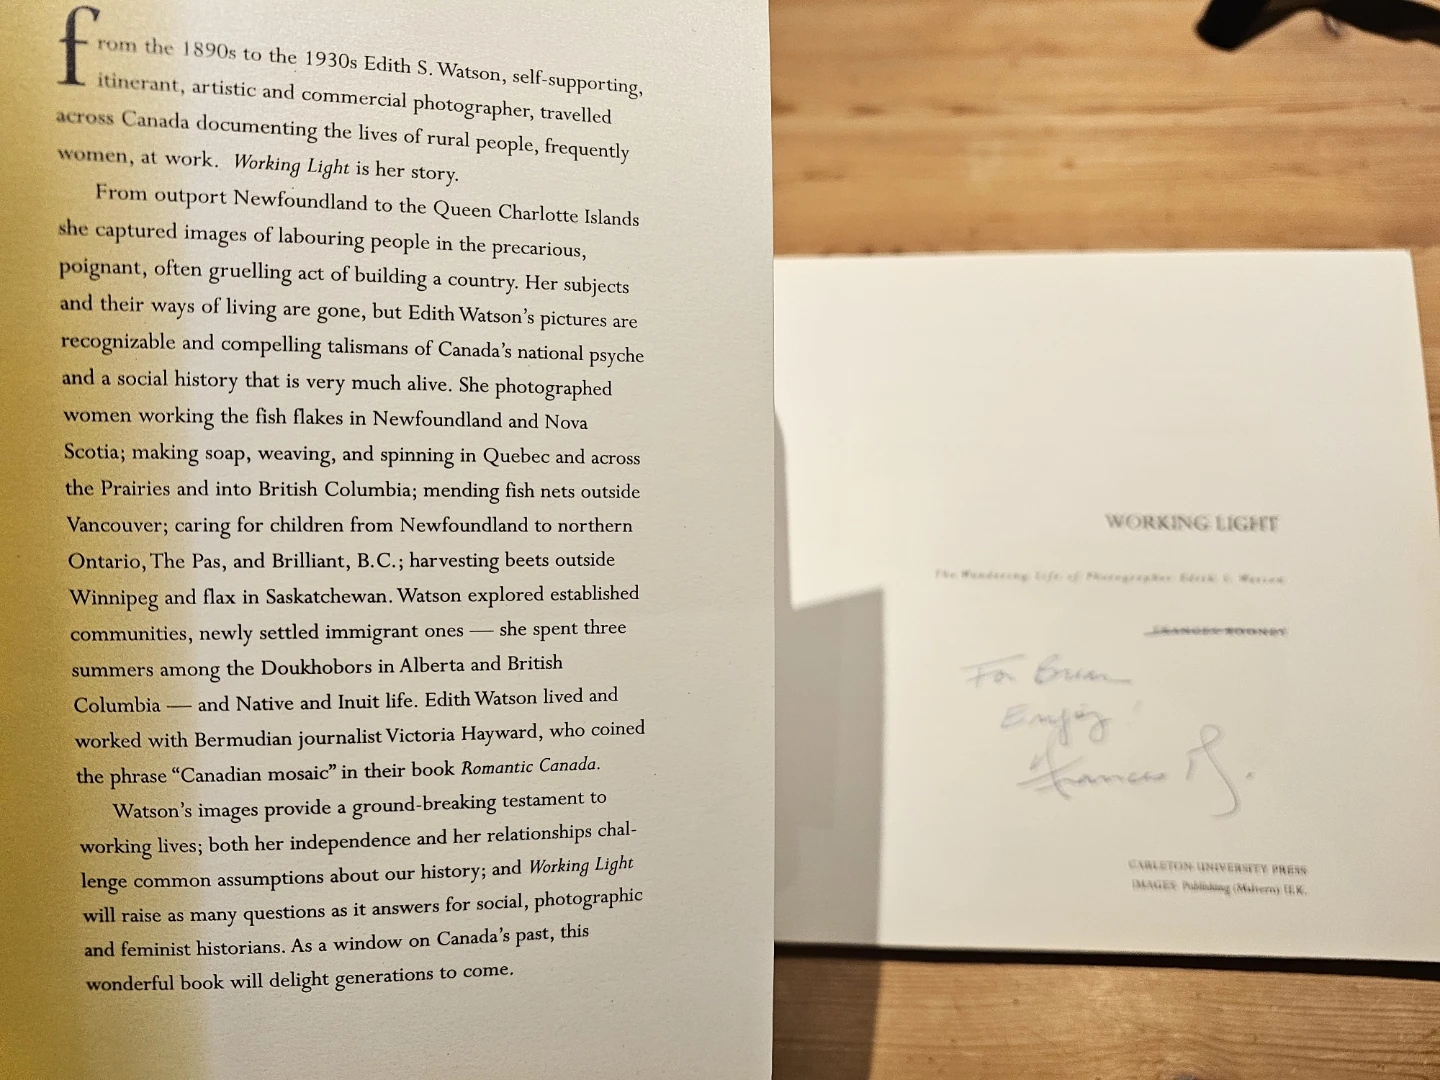 from the 1890s to the 1930s Edith S. Watson, self-supporting,
itinerant, artistic and commercial photographer, travelled
across Canada documenting the lives of rural people, frequently
women, at work. Working Light is her story.
From outport Newfoundland to the Queen Charlotte Islands
she captured images of labouring people in the precarious,
poignant, often gruelling act of building a country. Her subjects
and their ways of living are gone, but Edith Watson's pictures are
recognizable and compelling talismans of Canada's national psyche
and a social history that is very much alive. She photographed
women working the fish flakes in Newfoundland and Nova
Scotia; making soap, weaving, and spinning in Quebec and across
the Prairies and into British Columbia; mending fish nets outside
Vancouver; caring for children from Newfoundland to northern
Ontario, The Pas, and Brilliant, B.C.; harvesting beets outside
Winnipeg and flax in Saskatchewan. Watson explored established
communities, newly settled immigrant ones — she spent three
summers among the Doukhobors in Alberta and British
Columbia — and Native and Inuit life. Edith Watson lived and
worked with Bermudian journalist Victoria Hayward, who coined
the phrase “Canadian mosaic” in their book Romantic Canada.
Watson's images provide a ground-breaking testament to
working lives; both her independence and her relationships chal-
lenge common assumptions about our history; and Working Light
will raise as many questions as it answers for social, photographic
and feminist historians. As a window on Canada's past, this
wonderful book will delight generations to come.
WORKING LIGHT
The Wandering Life of Photographer Edith S. Watson
FRANCES ROONEY
For Brian
Enjoy!
Frances R.
CARLETON UNIVERSITY PRESS
IMAGES Publishing (Malvern) U.K.